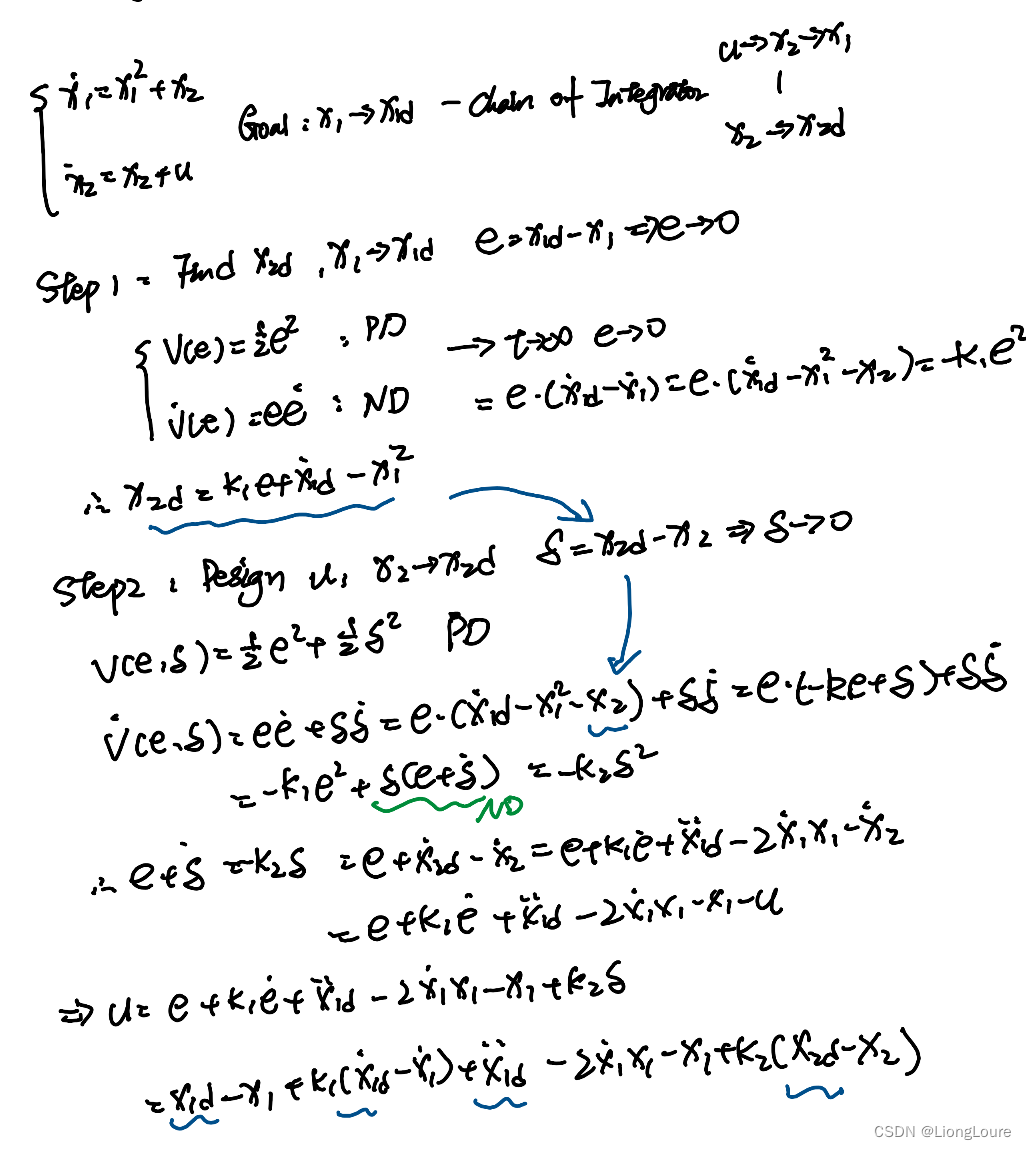 u→x₂→x₁
{ ẋ₁=x₁²+x₂
Goal: x₁→x₁d - Chain of Integrator
|
x₂→x₂d
ẋ₂=x₂+u
Step 1: Find x₂d, x₁→x₁d e=x₁d-x₁ ⇒ e→0
{ V(e)=½e² : PD → t→∞ e→0
V̇(e)=eė : ND = e·(ẋ₁d-ẋ₁)=e·(ẋ₁d-x₁²-x₂)=-k₁e²
∴ x₂d = k₁e+ẋ₁d-x₁²
Step2: Design u, x₂→x₂d δ=x₂d-x₂ ⇒ δ→0
V(e,δ)=½e²+½δ² PD
V̇(e,δ)=eė+δδ̇=e·(ẋ₁d-x₁²-x₂)+δδ̇=e·(-ke+δ)+δδ̇
=-k₁e²+δ(e+δ̇) =-k₂δ²
ND
∴ e+δ̇=-k₂δ =e+ẋ₂d-ẋ₂=e+k₁ė+ẍ₁d-2ẋ₁x₁-ẋ₂
=e+k₁ė+ẍ₁d-2ẋ₁x₁-x₁-u
⇒ u= e+k₁ė+ẍ₁d-2ẋ₁x₁-x₁+k₂δ
=x₁d-x₁+k₁(ẋ₁d-ẋ₁)+ẍ₁d-2ẋ₁x₁-x₁+k₂(x₂d-x₂)
CSDN @LiongLoure